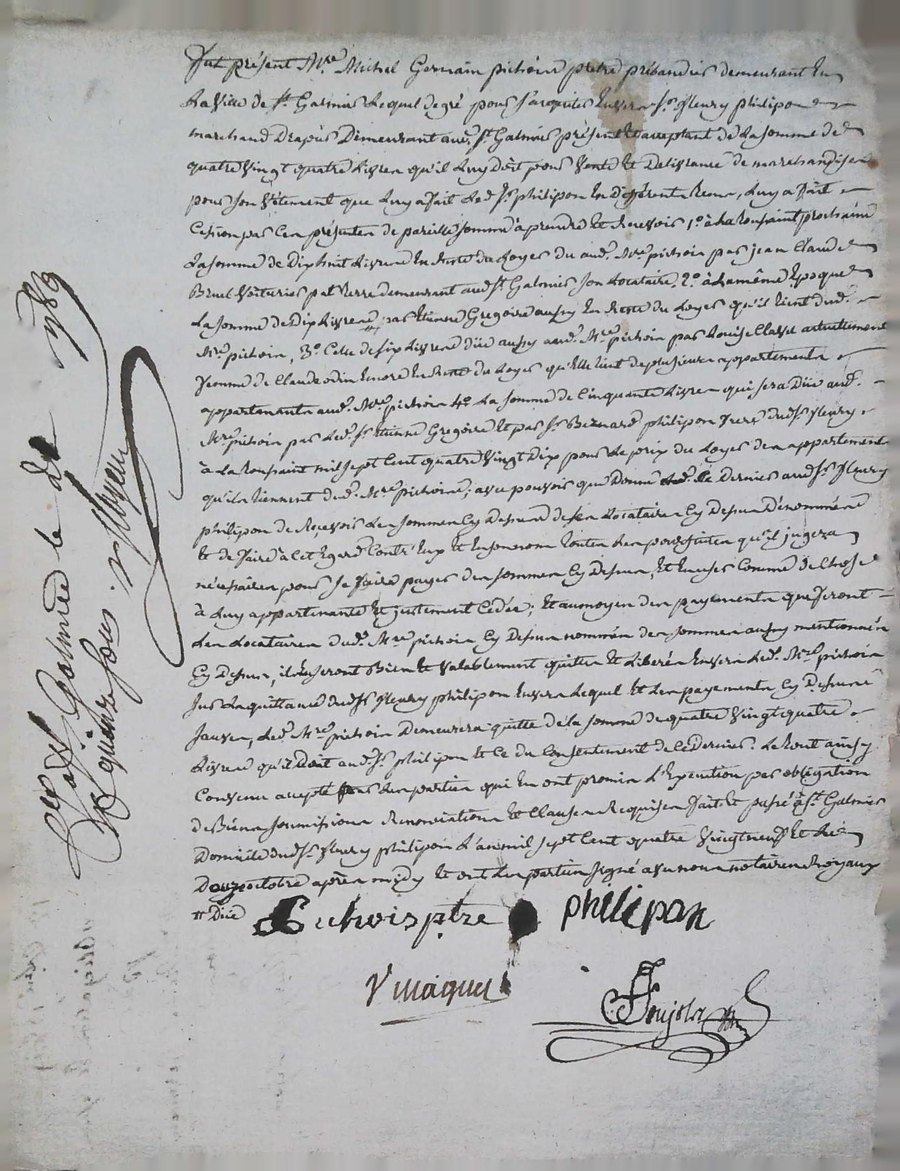 fut présent Mre Michel Germain pichoire pretre prébandier demeurant En
La ville de St. Galmier Lequel de gré pour s'acquiter Envers Sr. fleury philipon
marchand Drapier Demeurant aud. St Galmier présent et acceptant de La somme de
quatre vingt quatre Livres qu'il Luy Doit pour vente Et Délivrance de marchandises
pour son vêtement que Luy a fait Led. Sr philipon En Différents tems, Luy a fait
Cession par Ces présentes de pareille somme à prendre Et Recevoir 1°. à La toussaint prochaine
La somme de Dix huit Livres En Reste du Loyer du aud. Mre pichoir par jean Claude
Bruel voiturier par terre demeurant aud St. Galmier son Locataire, 2°. à La même Epoque
La somme de Dix Livres par Etienne Gregoire aussy En Reste du Loyer qu'il tient dud.
Mre pichoir, 3°. Celle de six Livres düe aussy aud. Mre pichoir par Louise Classe actuellement
femme de Claude odin Encore En Reste du Loyer qu'Elle tient de plusieurs appartements
appartenants aud. Mre pichoir 4°. La somme de Cinquante Livres qui sera Düe aud.
Mre pichoir par Led. Sr Etienne Gregoire Et par Sr Bernard philipon frere dud. Sr fleury
à La toussaint mil sept Cent quatre vingt Dix pour Le prix du Loyer des appartements
qu'ils tiennent dud. Mre pichoire; avec pouvoir que Donne Ce Dernier aud. Sr fleury
philipon de Recevoir Les sommes Cy Dessus des Locataires Cy Dessus Dénommés
Et de faire à Cet Egard Contr'Eux Et En son nom toutes Les poursuites qu'il jugera
nécessaires pour se faire payer des sommes Cy Dessus, Et En user Comme de Chose
à Luy appartenante Et justement Cédée; Et au moyen des payements que feront
Les Locataires dud. Mre pichoir Cy Dessus nommés des sommes aussy mentionnées
Cy Dessus, ils En seront Bien Et valablement quittes Et Libérés Envers Led. Mre pichoir
sur La quittance dud Sr fleury philipon Envers Lequel Et Les payements Cy Dessus
Led. Mre pichoir Demeurera quitte de La somme de quatre vingt quatre
Livres qu'il Doit aud. Sr. philipon Et Ce du Consentement de Ce Dernier. Le tout ainsy
Convenu accepté par Les parties qui En ont promis L'Execution par obligation
de Biens soumissions Renonciations Et Clauses Requises fait Et passé à St. Galmier
Domicile dud Sr. fleury philipon L'an mil sept Cent quatre vingt neuf Et Le
Douze octobre après midy Et ont Les parties signé avec nous notaires Royaux
Pichoir ptre philipon
Vmaguet
Ponjolas
à St Galmier le 1789
R quinze sols